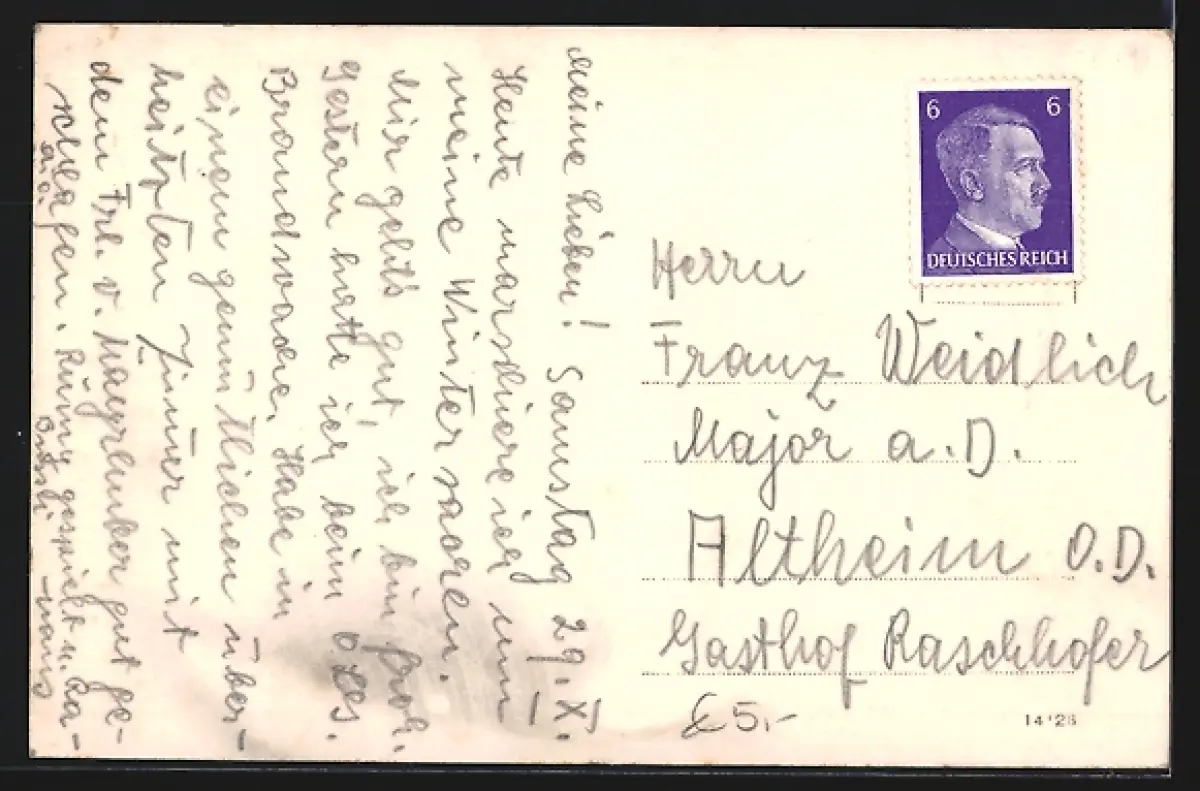 Meine Lieben! Samstag 29. X.
Heute marschiere ich um
meine Wintersachen.
Mir geht's gut, ich bin froh.
Gestern hatte ich beim
Brandwache. Habe in
einem gemütlichen über-
heizten Zimmer mit
dem Frl. v. gut ge-
schlafen. gespielt u.
6 6
DEUTSCHES REICH
Herrn
Franz Weidlich
Major a.D.
Altheim O.D.
Gasthof Raschhofer
£ 5,-
14'28